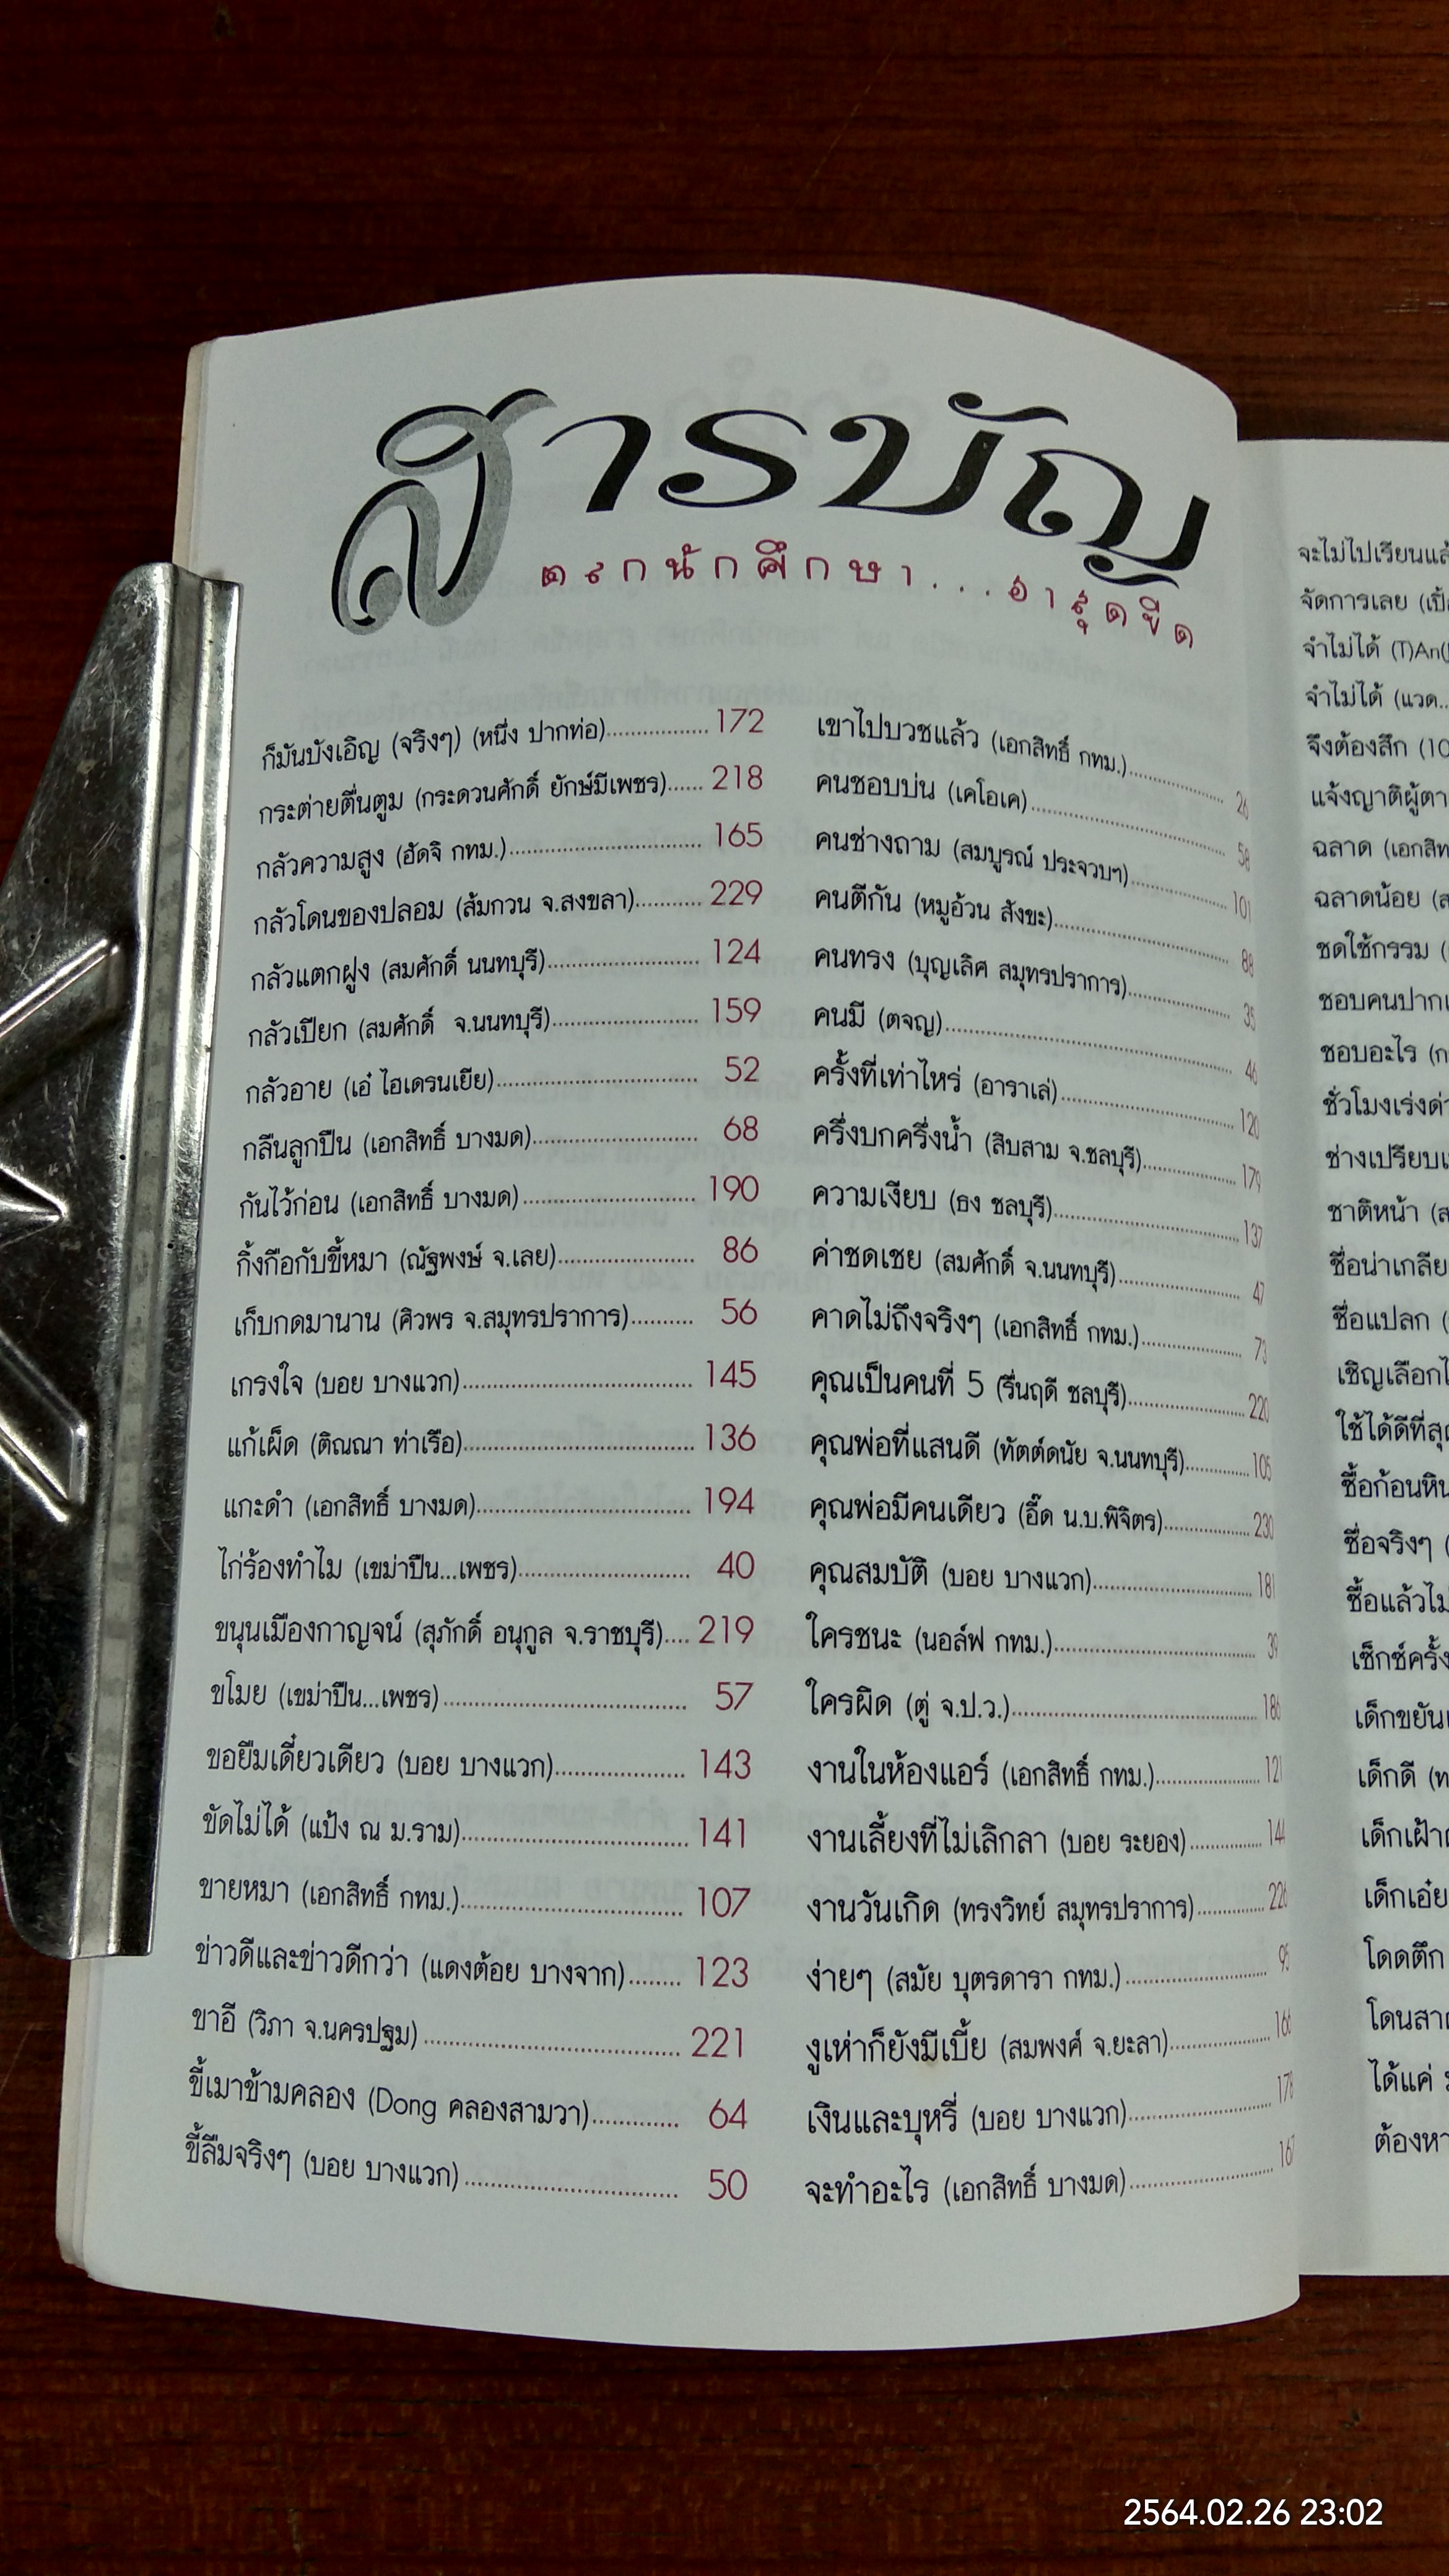 สารบัญ
ตลกนักศึกษา...ฮาสุดขีด
ก็มันบังเอิญ (จริงๆ) (หนึ่ง ปากท่อ) 172
กระต่ายตื่นตูม (กระดวนศักดิ์ ยักษ์มีเพชร) 218
กลัวความสูง (ฮัดจิ กทม.) 165
กลัวโดนของปลอม (ส้มกวน จ.สงขลา) 229
กลัวแตกฝูง (สมศักดิ์ นนทบุรี) 124
กลัวเปียก (สมศักดิ์ จ.นนทบุรี) 159
กลัวอาย (เอ๋ ไฮเดรนเยีย) 52
กลืนลูกปืน (เอกสิทธิ์ บางมด) 68
กันไว้ก่อน (เอกสิทธิ์ บางมด) 190
กิ้งกือกับขี้หมา (ณัฐพงษ์ จ.เลย) 86
เก็บกดมานาน (ศิวพร จ.สมุทรปราการ) 56
เกรงใจ (บอย บางแวก) 145
แก้เผ็ด (ติณณา ท่าเรือ) 136
แกะดำ (เอกสิทธิ์ บางมด) 194
ไก่ร้องทำไม (เขม่าปืน...เพชร) 40
ขนุนเมืองกาญจน์ (สุภักดิ์ อนุกูล จ.ราชบุรี) 219
ขโมย (เขม่าปืน...เพชร) 57
ขอยืมเดี๋ยวเดียว (บอย บางแวก) 143
ขัดไม่ได้ (แป้ง ณ ม.ราม) 141
ขายหมา (เอกสิทธิ์ กทม.) 107
ข่าวดีและข่าวดีกว่า (แดงต้อย บางจาก) 123
ขาอี (วิภา จ.นครปฐม) 221
ขี้เมาข้ามคลอง (Dong คลองสามวา) 64
ขี้ลืมจริงๆ (บอย บางแวก) 50
เขาไปบวชแล้ว (เอกสิทธิ์ กทม.) 26
คนชอบบ่น (เคโอเค) 58
คนช่างถาม (สมบูรณ์ ประจวบฯ) 101
คนตีกัน (หมูอ้วน สังขะ) 88
คนทรง (บุญเลิศ สมุทรปราการ) 35
คนมี (ตจญ) 46
ครั้งที่เท่าไหร่ (อาราเล่) 120
ครึ่งบกครึ่งน้ำ (สิบสาม จ.ชลบุรี) 179
ความเงียบ (ธง ชลบุรี) 137
ค่าชดเชย (สมศักดิ์ จ.นนทบุรี) 47
คาดไม่ถึงจริงๆ (เอกสิทธิ์ กทม.) 73
คุณเป็นคนที่ 5 (รื่นฤดี ชลบุรี) 220
คุณพ่อที่แสนดี (ทัตต์ดนัย จ.นนทบุรี) 105
คุณพ่อมีคนเดียว (อี๊ด น.บ.พิจิตร) 230
คุณสมบัติ (บอย บางแวก) 181
ใครชนะ (นอล์ฟ กทม.) 39
ใครผิด (ตู่ จ.ป.ว.) 186
งานในห้องแอร์ (เอกสิทธิ์ กทม.) 121
งานเลี้ยงที่ไม่เลิกลา (บอย ระยอง) 144
งานวันเกิด (ทรงวิทย์ สมุทรปราการ) 226
ง่ายๆ (สมัย บุตรดารา กทม.) 95
งูเห่าก็ยังมีเบี้ย (สมพงศ์ จ.ยะลา) 166
เงินและบุหรี่ (บอย บางแวก) 178
จะทำอะไร (เอกสิทธิ์ บางมด) 167
จะไม่ไปเรียนแล้
จัดการเลย
จำไม่ได้ (T)An(
จำไม่ได้ (แวด..
จึงต้องสึก (10
แจ้งญาติผู้ตา
ฉลาด (เอกสิท
ฉลาดน้อย
ชดใช้กรรม (
ชอบคนปาก
ชอบอะไร (ก
ชั่วโมงเร่งด่
ช่างเปรียบ
ชาติหน้า
ชื่อน่าเกลีย
ชื่อแปลก (
เชิญเลือก
ใช้ได้ดีที่สุ
ซื้อก้อนหิน
ชื่อจริงๆ (
ซื้อแล้วไม
เซ็กซ์ครั้ง
เด็กขยัน
เด็กดี
เด็กเฝ้า
เด็กเอ๋ย
โดดตึก
โดนสา
ได้แค่
ต้องหา
2564.02.26 23:02